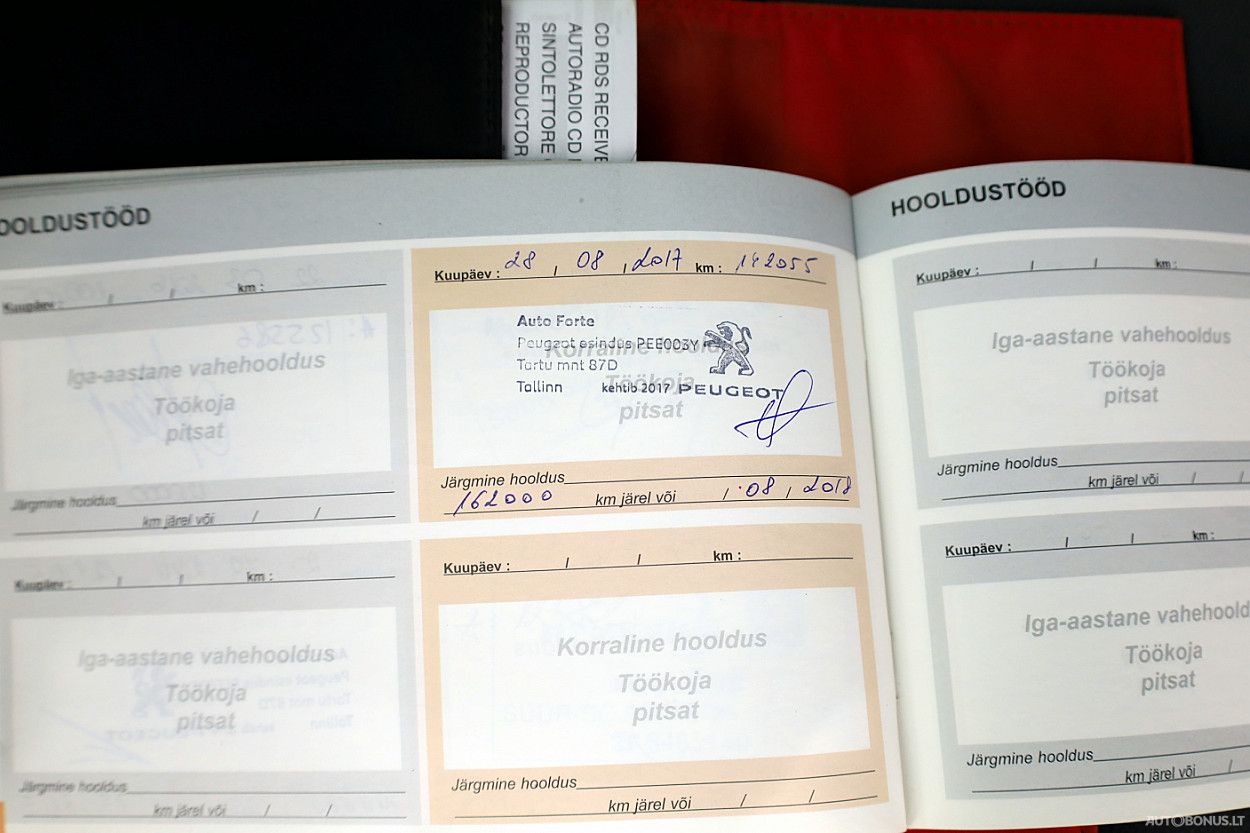 CD RDS RECEIVE
AUTORADIO CD
SINTOLETTORE
REPRODUCTOR
OOLDUSTÖÖD
Kuupäev : / / km :
Iga-aastane vahehooldus
Töökoja
pitsat
Järgmine hooldus
km järel või / /
Kuupäev : / / km :
Iga-aastane vahehooldus
Töökoja
pitsat
Järgmine hooldus
km järel või / /
Kuupäev : 28 / 08 / 2017 km : 142055
Auto Forte
Peugeot esindus PEE003Y
Korraline hooldus
Tartu mnt 87D
Töökoja
Tallinn kehtib 2017 PEUGEOT
pitsat
Järgmine hooldus
162000 km järel või / 08 / 2018
Kuupäev : / / km :
Korraline hooldus
Töökoja
pitsat
Järgmine hooldus
km järel või / /
HOOLDUSTÖÖD
Kuupäev : / / km :
Iga-aastane vahehooldus
Töökoja
pitsat
Järgmine hooldus
km järel või / /
Kuupäev : / / km :
Iga-aastane vahehoold
Töökoja
pitsat
Järgmine hooldus
km järel või /
AUTOBONUS.LT